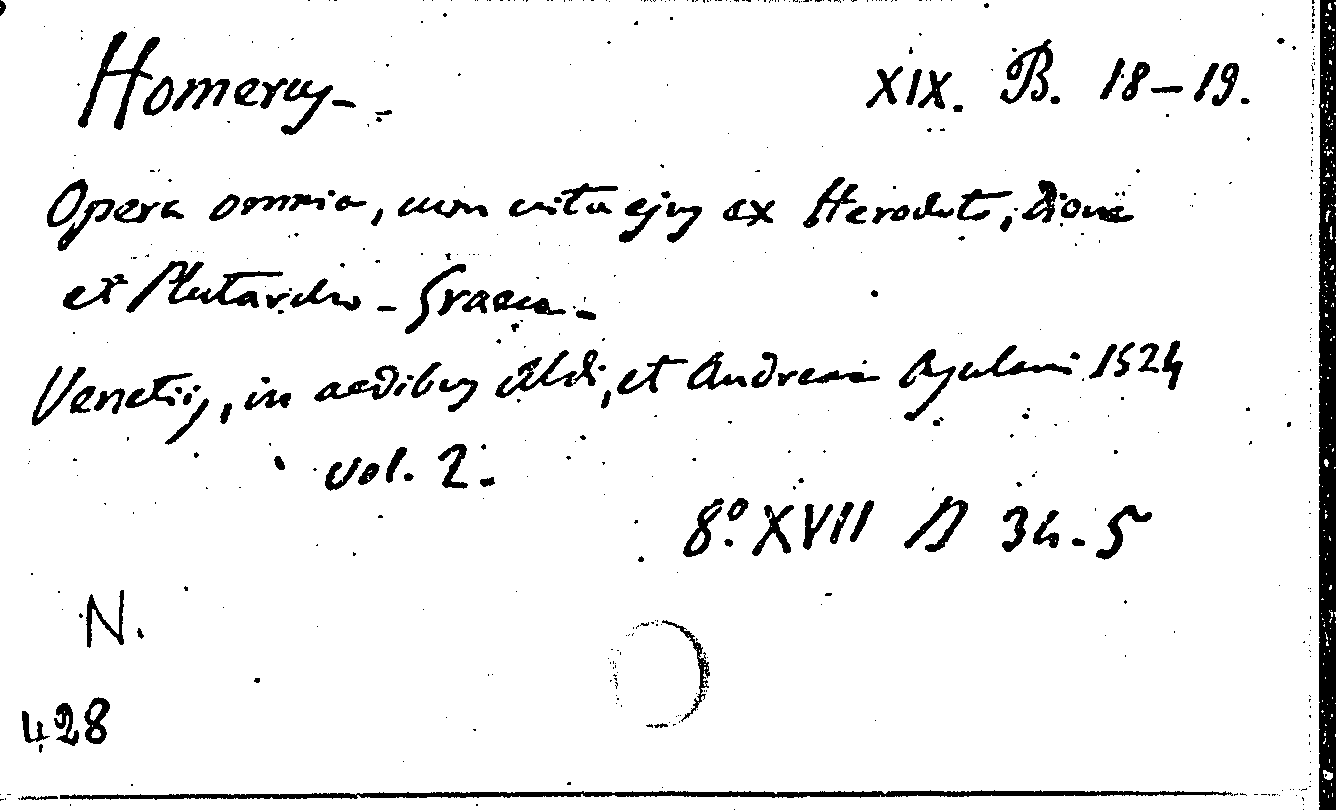 Homerus - XIX. B. 18-19.
Opera omnia, cum vita ejus ex Herodoto, Dione
et Plutarcho - Graece -
Venetiis, in aedibus Aldi, et Andreae Asulani 1524
vol. 2.
8.º XVII D 34-5
N.
428